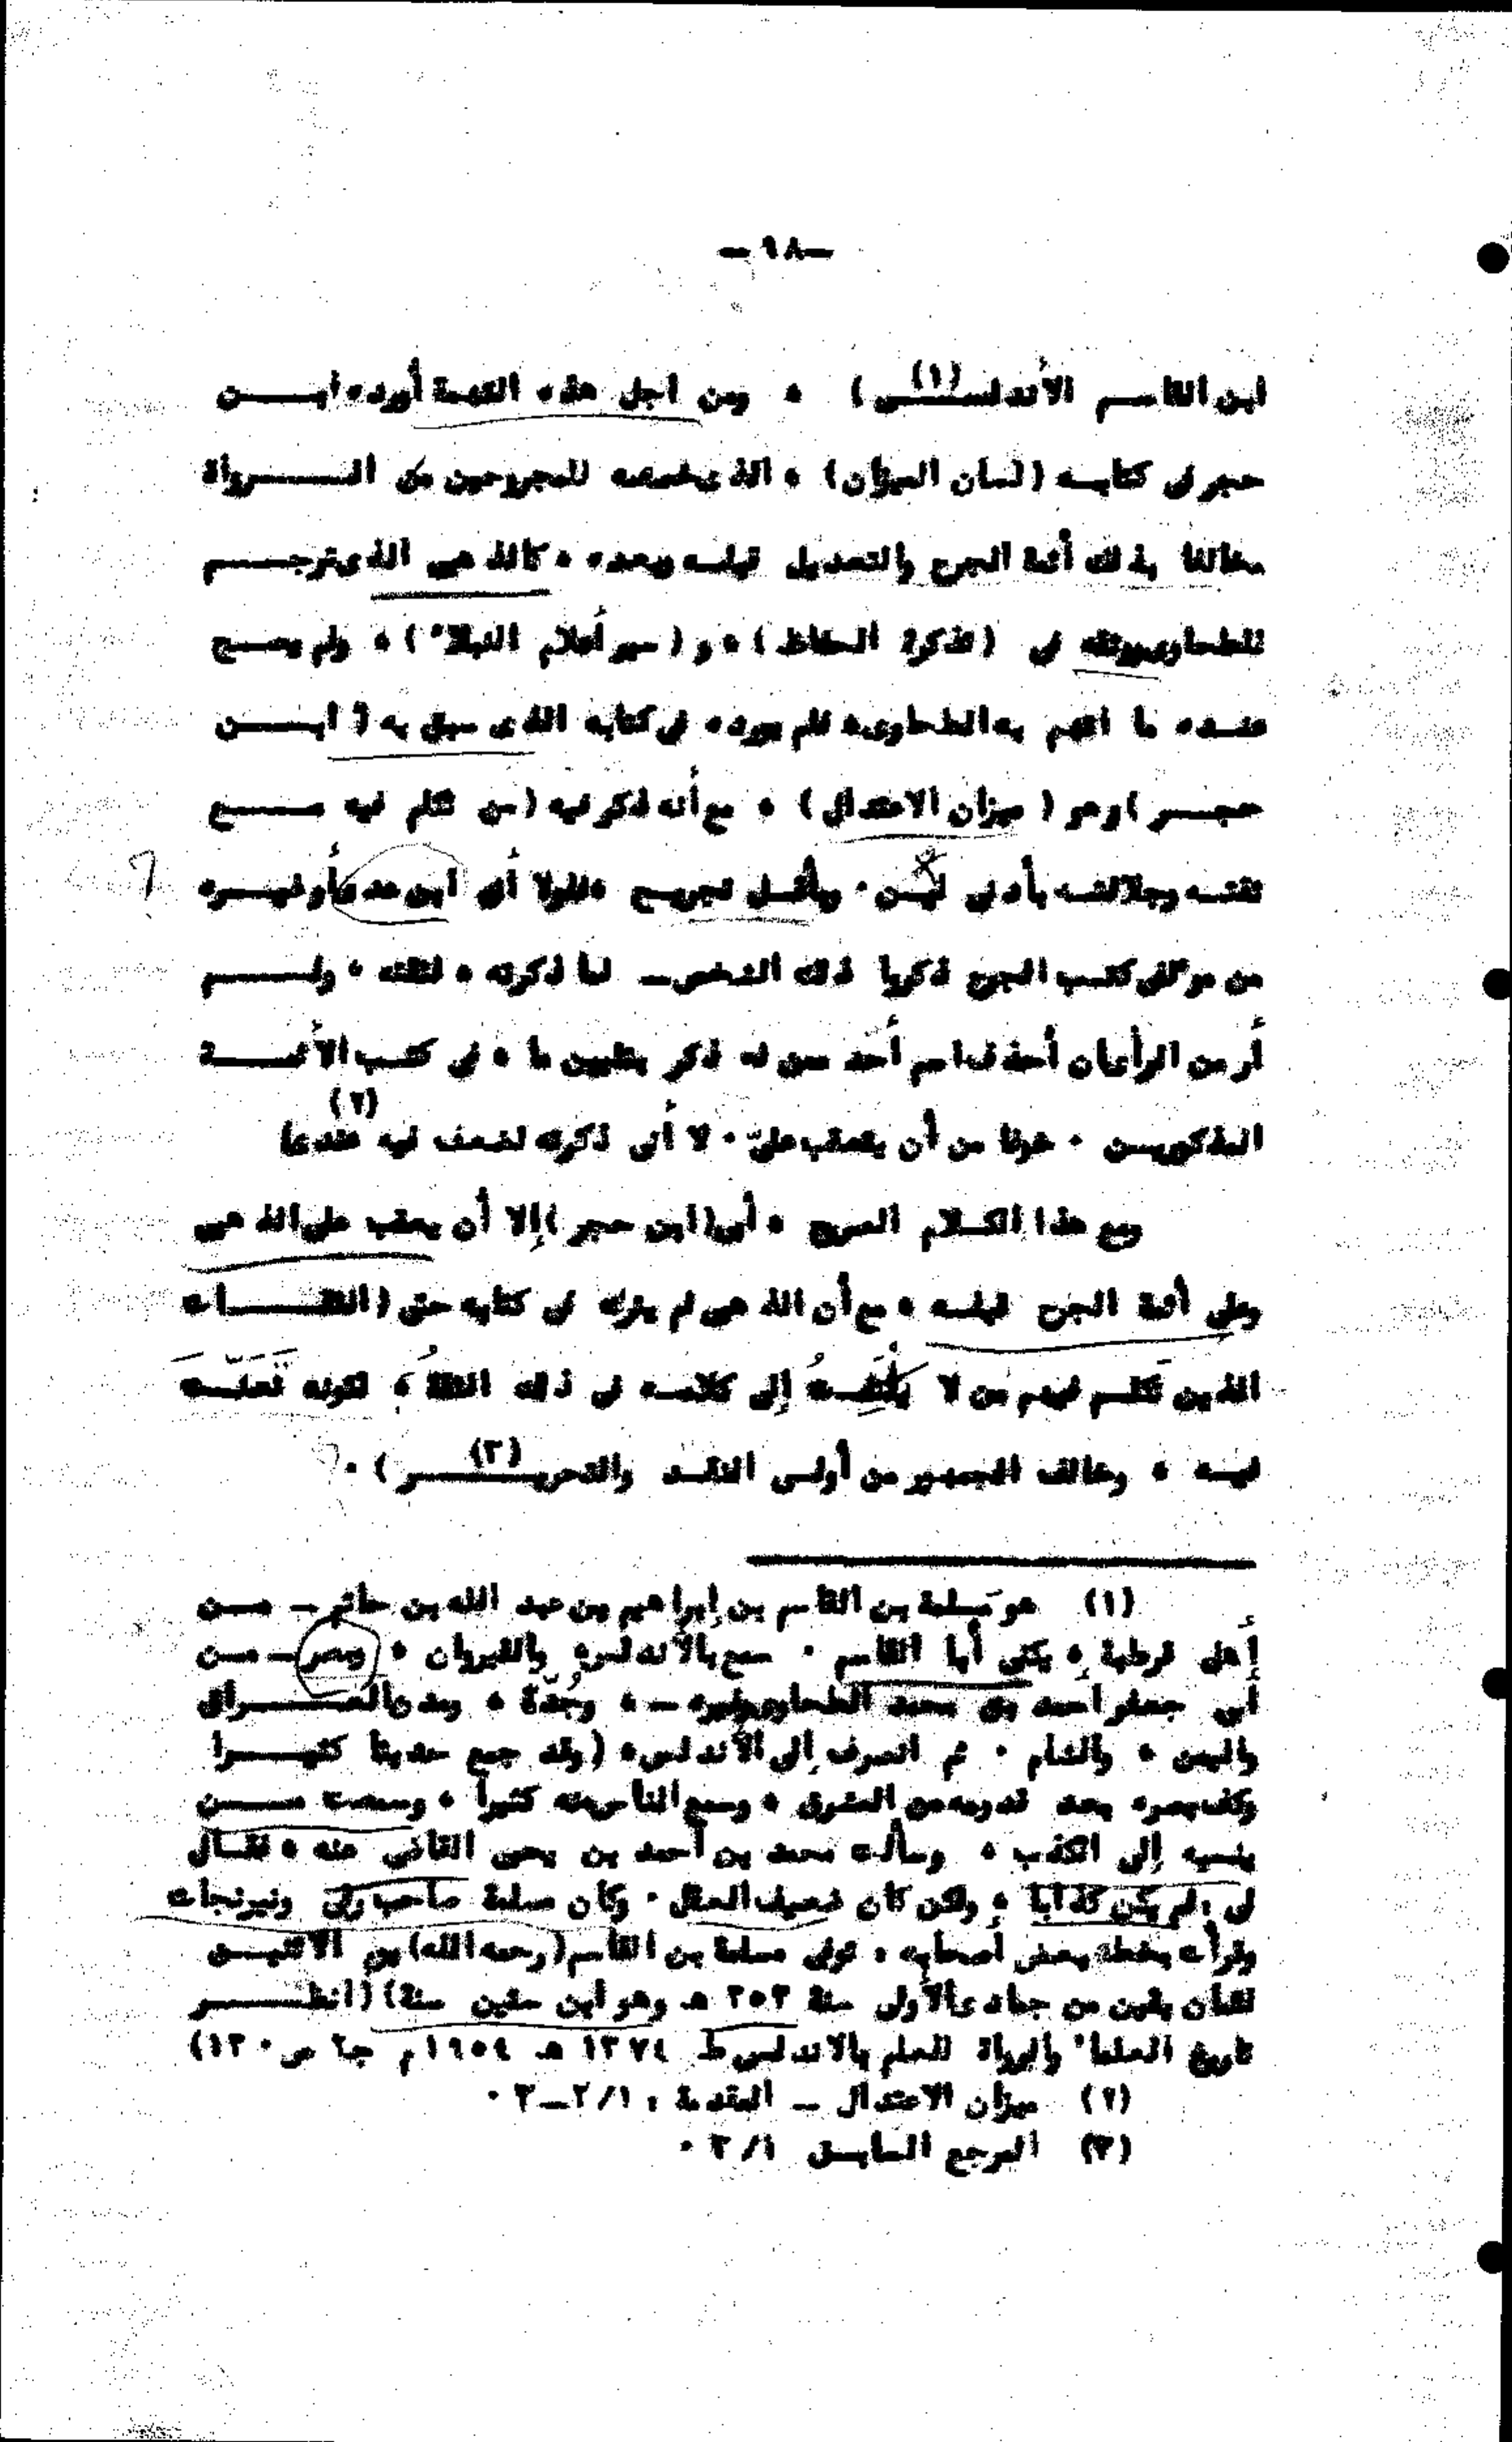 -٩٨-
ابن القاسم الأندلسي (١) ) ، ومن اجل هذه التهمة أورده ابن
حجر في كتابه (لسان الميزان) ، الذى خصصه للمجروحين من الرواة
مخالفا بذلك أئمة الجرح والتعديل قبله وبعده ، كالذهبي الذى ترجم
للطحاوى ووثقه في (تذكرة الحفاظ) ، و (سير أعلام النبلاء) ، ولم يصح
عنده ما اتهم به الطحاوى ، فلم يورده في كتابه الذى سبق به ( ابن
حجر ) وهو ( ميزان الاعتدال ) ، مع أنه ذكر فيه (من تكلم فيه مع
ثقته وجلالته بأدنى لين . وبأقل تجريح ، فلولا أن ابن عدى أو غيره
من مؤلفى كتب الجرح ذكروا ذلك الشخص - لما ذكرته ، لثقته ، ولم
أر من الرأى أن أحذف اسم أحد ممن له ذكر بتليين ما ، في كتب الأئمة
المذكورين . خوفا من أن يتعقب علىّ . لا أنى ذكرته لضعف فيه عندى) (٢)
ومع هذا الكلام الصريح ، أبى (ابن حجر) إلا أن يعقب على الذهبي
وعلى أئمة الجرح قبله ، مع أن الذهبى لم يترك في كتابه حتى (الثقات
الذين تَكلم فيهم من لا يُلْتَفَتُ إلى كلامه في ذلك الثقةُ ، لكونه تَعنّتَ
فيه ، وخالف الجمهور من أولى النقد والتحرير (٣) ) .
(١) هو مَسلمة بن القاسم بن إبراهيم بن عبد الله بن حاتم - من
أهل قرطبة ، يكنى أبا القاسم . سمع بالأندلس ، والقيروان ، ومصر - من
أبى جعفر أحمد بن محمد الطحاوى وغيره - ، وجُدّة ، ومدن العراق
واليمن ، والشام . ثم انصرف إلى الأندلس ، (وقد جمع حديثا كثيرا
وكف بصره بعد قدومه من المشرق ، وسمع الناس منه كثيراً ، وسمعت من
ينسبه إلى الكذب ، وسألت محمد بن أحمد بن يحيى القاضي عنه ، فقال
لى : لم يكن كذابا ، ولكن كان ضعيف العقل . وكان مسلمة صاحب رقى ونيرنجات
وقرأت بخطه بعض أصحابه . توفى مسلمة بن القاسم (رحمه الله) يوم الاثنين
لثمان بقين من جمادى الأولى سنة ٣٥٣ هـ وهو ابن ستين سنة) (انظر
تاريخ العلماء والرواة للعلم بالاندلس ط ١٣٧٤ هـ ١٩٥٤ م جـ٢ ص ١٣٠)
(٢) ميزان الاعتدال - المقدمة : ٢/١-٣ .
(٣) المرجع السابق ٣/١ .